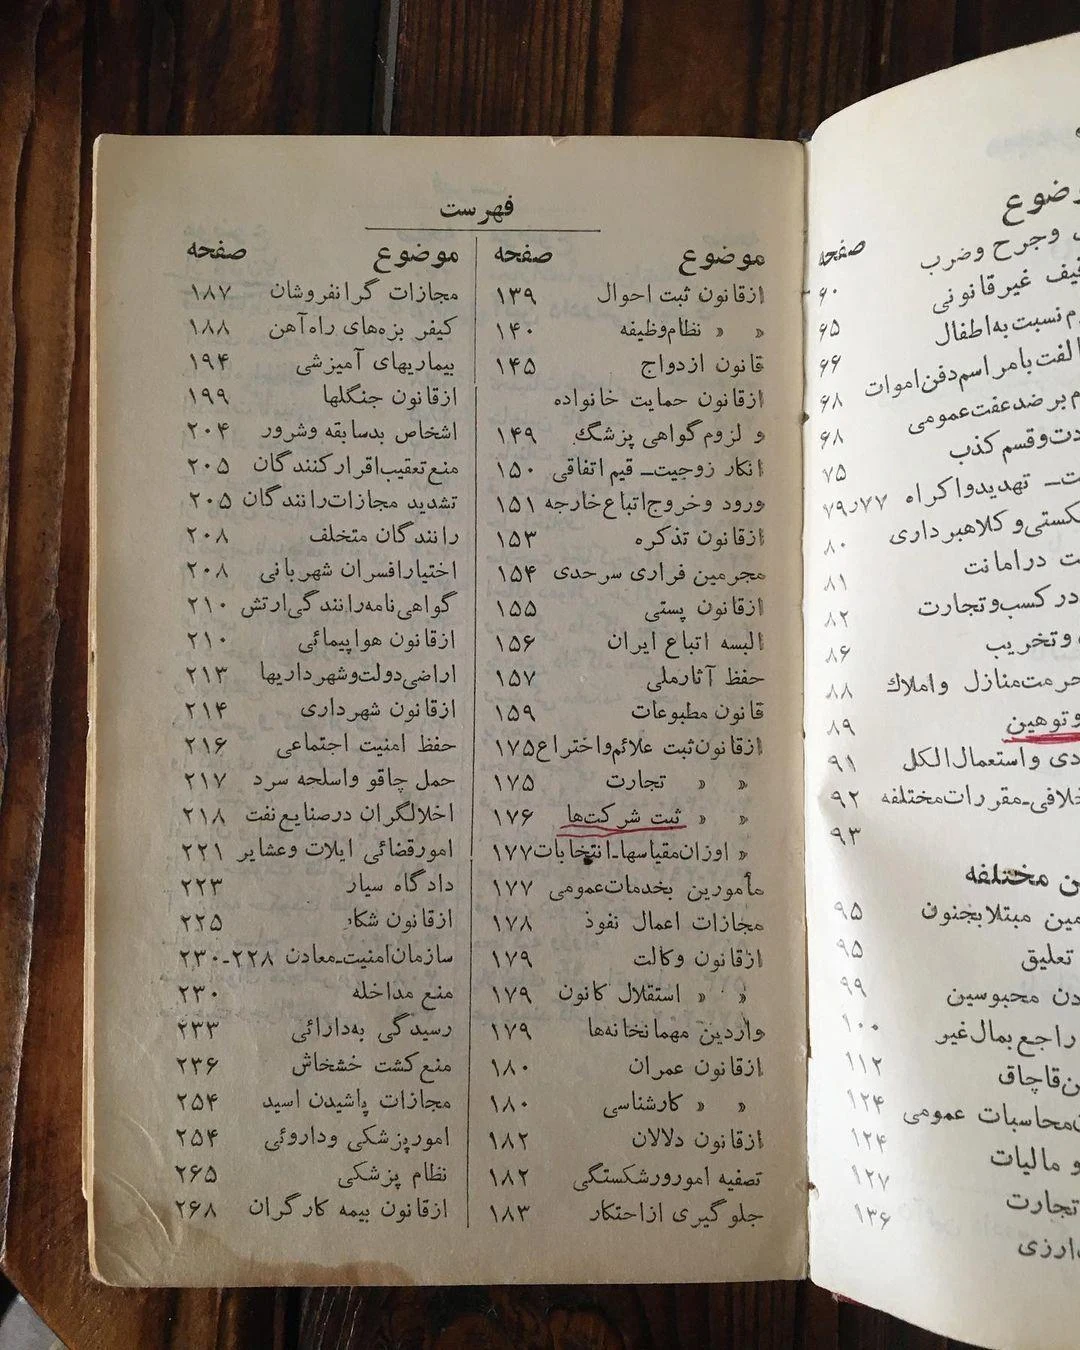 فهرست
موضوع صفحه
ازقانون ثبت احوال ۱۳۹
» » نظام‌وظیفه ۱۴۰
قانون ازدواج ۱۴۵
ازقانون حمایت خانواده
و لزوم‌گواهی پزشگ ۱۴۹
انکار زوجیت_ قیم اتفاقی ۱۵۰
ورود وخروج‌اتباع‌خارجه ۱۵۱
ازقانون تذکره ۱۵۳
مجرمین فراری سرحدی ۱۵۴
ازقانون پستی ۱۵۵
البسه اتباع ایران ۱۵۶
حفظ آثارملی ۱۵۷
قانون مطبوعات ۱۵۹
ازقانون‌ثبت علائم‌واختراع ۱۷۵
» » تجارت ۱۷۵
» » ثبت شرکت‌ها ۱۷۶
» اوزان‌مقیاسها-انتخابات ۱۷۷
مأمورین بخدمات‌عمومی ۱۷۷
مجازات اعمال نفوذ ۱۷۸
ازقانون وکالت ۱۷۹
» » استقلال کانون ۱۷۹
واردین مهمانخانه‌ها ۱۷۹
ازقانون عمران ۱۸۰
» » کارشناسی ۱۸۰
ازقانون دلالان ۱۸۲
تصفیه امورورشکستگی ۱۸۲
جلوگیری ازاحتکار ۱۸۳
موضوع صفحه
مجازات گرانفروشان ۱۸۷
کیفر بزه‌های راه‌آهن ۱۸۸
بیماریهای آمیزشی ۱۹۴
ازقانون جنگلها ۱۹۹
اشخاص بدسابقه وشرور ۲۰۴
منع‌تعقیب‌اقرارکنندگان ۲۰۵
تشدید مجازات‌رانندگان ۲۰۵
رانندگان متخلف ۲۰۸
اختیارافسران شهربانی ۲۰۸
گواهی‌نامه‌رانندگی‌ارتش ۲۱۰
ازقانون هواپیمائی ۲۱۰
اراضی‌دولت‌وشهرداریها ۲۱۳
ازقانون شهرداری ۲۱۴
حفظ امنیت اجتماعی ۲۱۶
حمل چاقو واسلحه سرد ۲۱۷
اخلالگران درصنایع‌نفت ۲۱۸
امورقضائی ایلات وعشایر ۲۲۱
دادگاه سیار ۲۲۳
ازقانون شکار ۲۲۵
سازمان‌امنیت-معادن ۲۲۸-۲۳۰
منع مداخله ۲۳۰
رسیدگی به‌دارائی ۲۳۳
منع‌کشت خشخاش ۲۳۶
مجازات پاشیدن اسید ۲۵۴
امورپزشکی وداروئی ۲۵۴
نظام پزشکی ۲۶۵
ازقانون بیمه کارگران ۲۶۸
صفحه
وجرح وضرب ۶۰
غیرقانونی ۶۵
نسبت به‌اطفال ۶۶
بامراسم‌دفن‌اموات ۶۸
برضدعفت‌عمومی ۶۸
وقسم کذب ۷۵
تهدیدواکراه ۷۷ر۷۹
وکلاهبرداری ۸۰
درامانت ۸۱
درکسب‌وتجارت ۸۲
وتخریب ۸۶
منازل واملاك ۸۸
وتوهین ۸۹
واستعمال‌الکل ۹۱
مقررات‌مختلفه ۹۲
۹۳
مختلفه
مبتلابجنون ۹۵
تعلیق ۹۵
محبوسین ۹۹
راجع‌بمال‌غیر ۱۰۰
قاچاق ۱۱۲
محاسبات عمومی ۱۲۴
و مالیات ۱۲۴
تجارت ۱۲۷
ارزی ۱۳۶